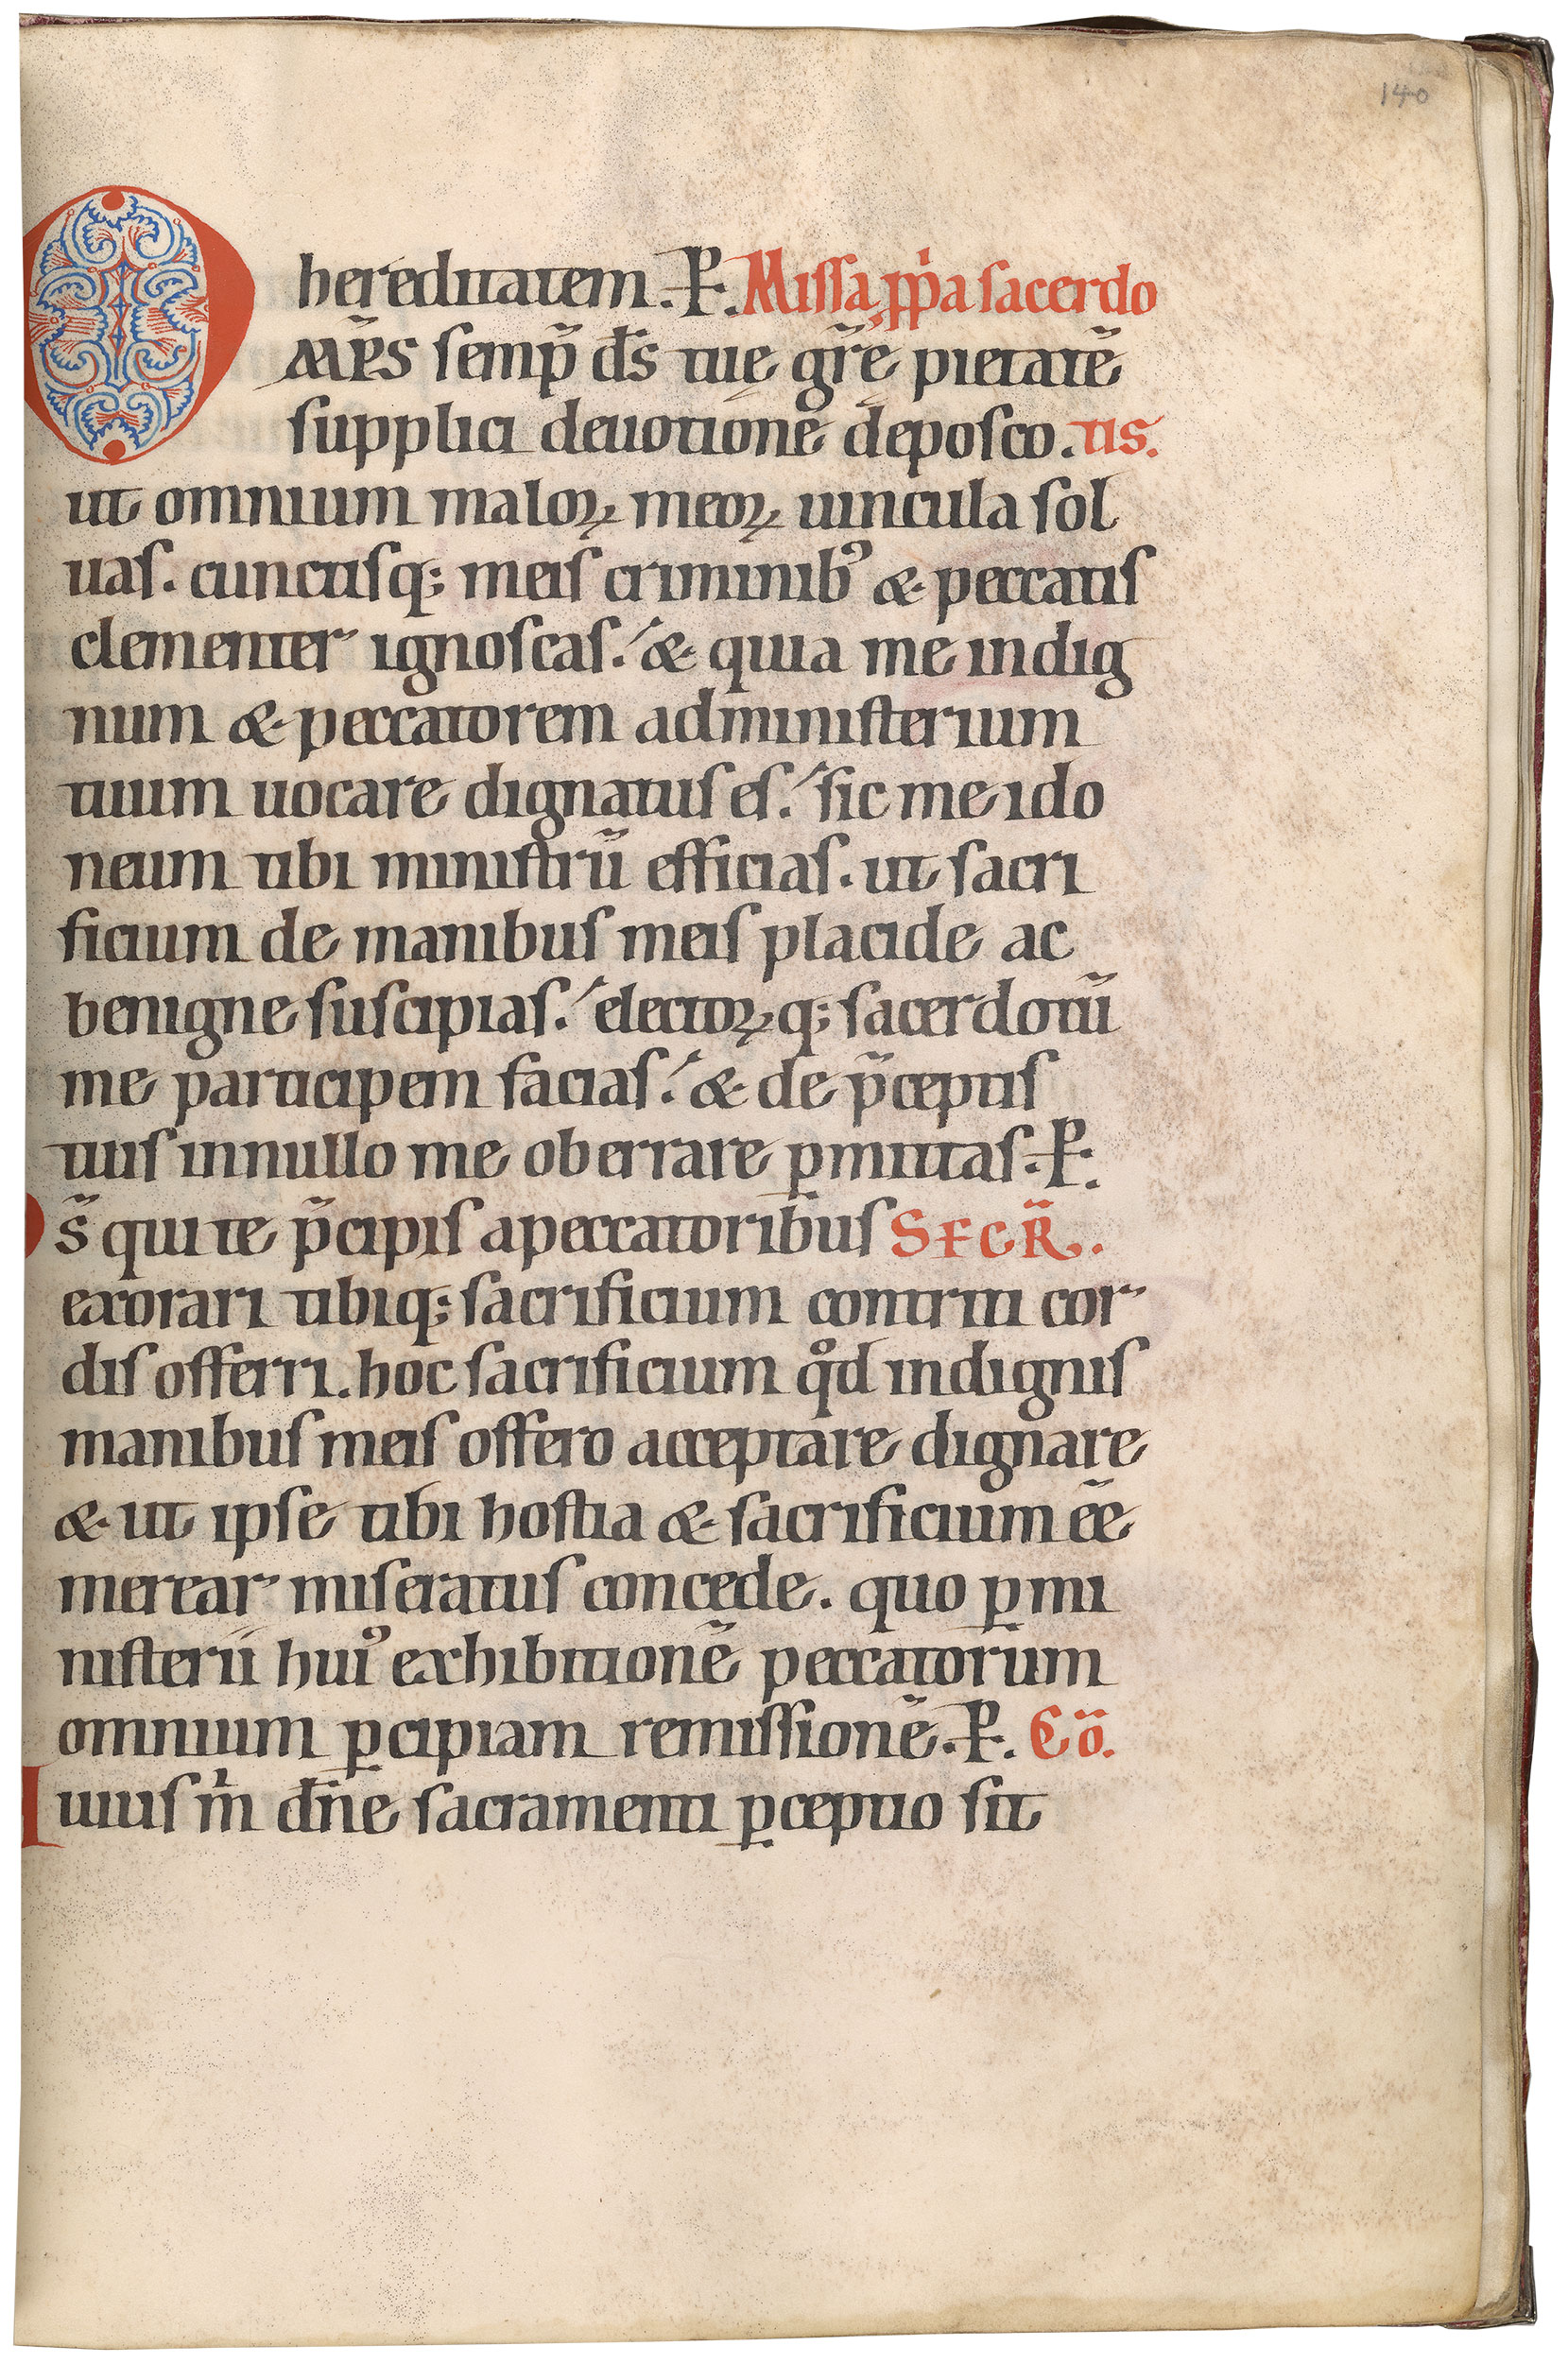 140
hereditatem. P. Missa ꝓp̍a sacerdo
OMP̄S semp̄ d̄s tuę gr̄ę pietatē
supplici deuotione dęposco. tis.
ut omnium maloꝝ meoꝝ uincula sol
uas. cunctisq; meis criminibꝰ & peccatis
clementer ignoscas. & quia me indig
num & peccatorem administerium
tuum uocare dignatus es. sic me ido
neum tibi ministrū efficias. ut sacri
ficium de manibus meis placide ac
benigne suscipias. electoꝝq; sacerdotū
me participem facias. & de p̄ceptis
tuis innullo me oberrare ꝑmittas. P.
D̄s qui te p̄cipis apeccatoribus SECR̄.
exorari tibiq; sacrificium contriti cor
dis offerri. hoc sacrificium qͦd indignis
manibus meis offero acceptare dignare
& ut ipse tibi hostia & sacrificium ēē
merear miseratus concede. quo ꝑ mi
nisterii huiꝰ exhibitionē peccatorum
omnium ꝑcipiam remissionē. P. Cō.
Huius m̍ dn̄e sacramenti ꝑceptio sit